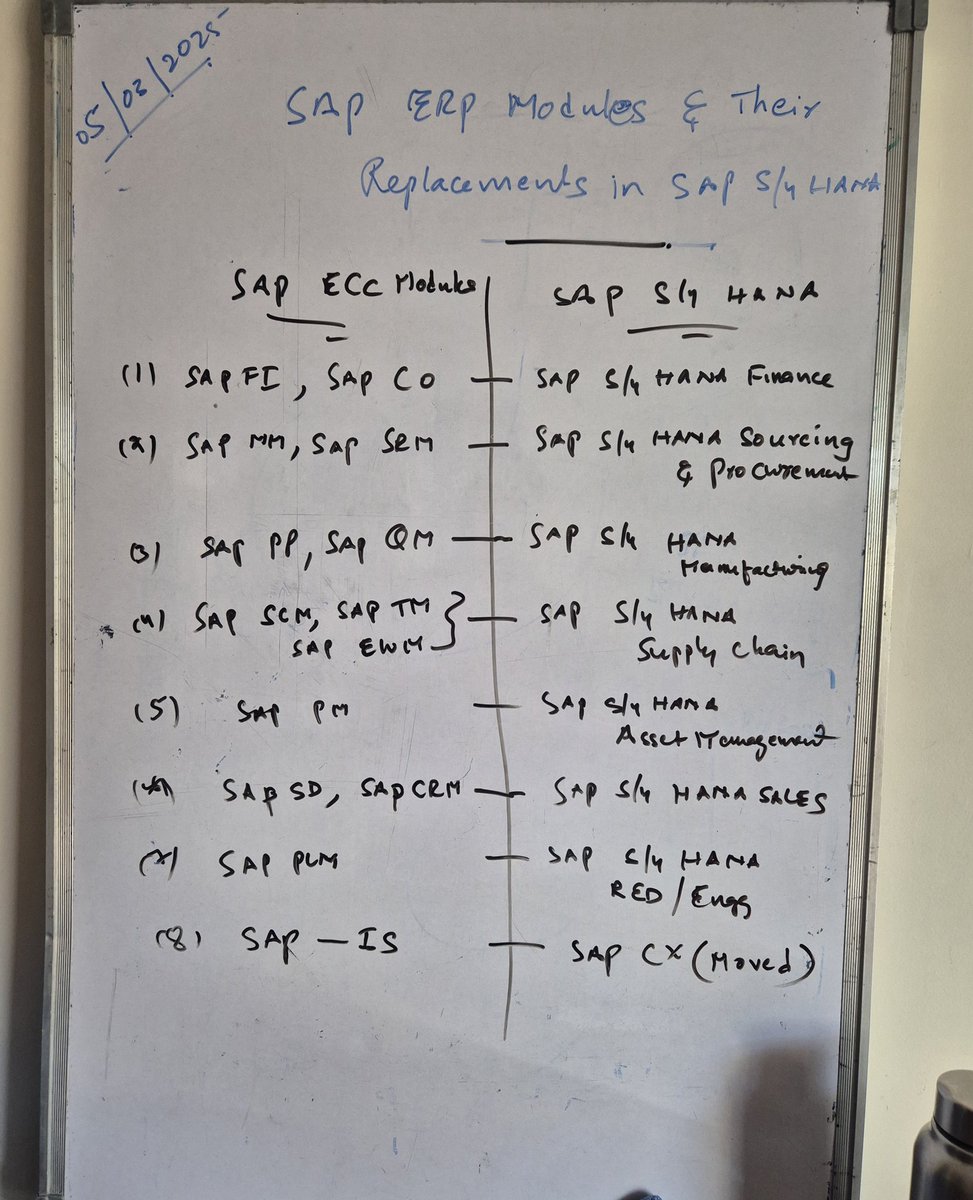 05/03/2025
SAP ERP Modules & Their
Replacements in SAP S/4 HANA
SAP ECC Modules
SAP S/4 HANA
(1) SAP FI, SAP CO — SAP S/4 HANA Finance
(2) SAP MM, SAP SRM — SAP S/4 HANA Sourcing
& Procurement
(3) SAP PP, SAP QM — SAP S/4 HANA
Manufacturing
(4) SAP SCM, SAP TM } — SAP S/4 HANA
SAP EWM Supply Chain
(5) SAP PM — SAP S/4 HANA
Asset Management
SAP SD, SAP CRM — SAP S/4 HANA SALES
(7) SAP PLM — SAP S/4 HANA
RED/Engg
(8) SAP — IS — SAP CX (Moved)